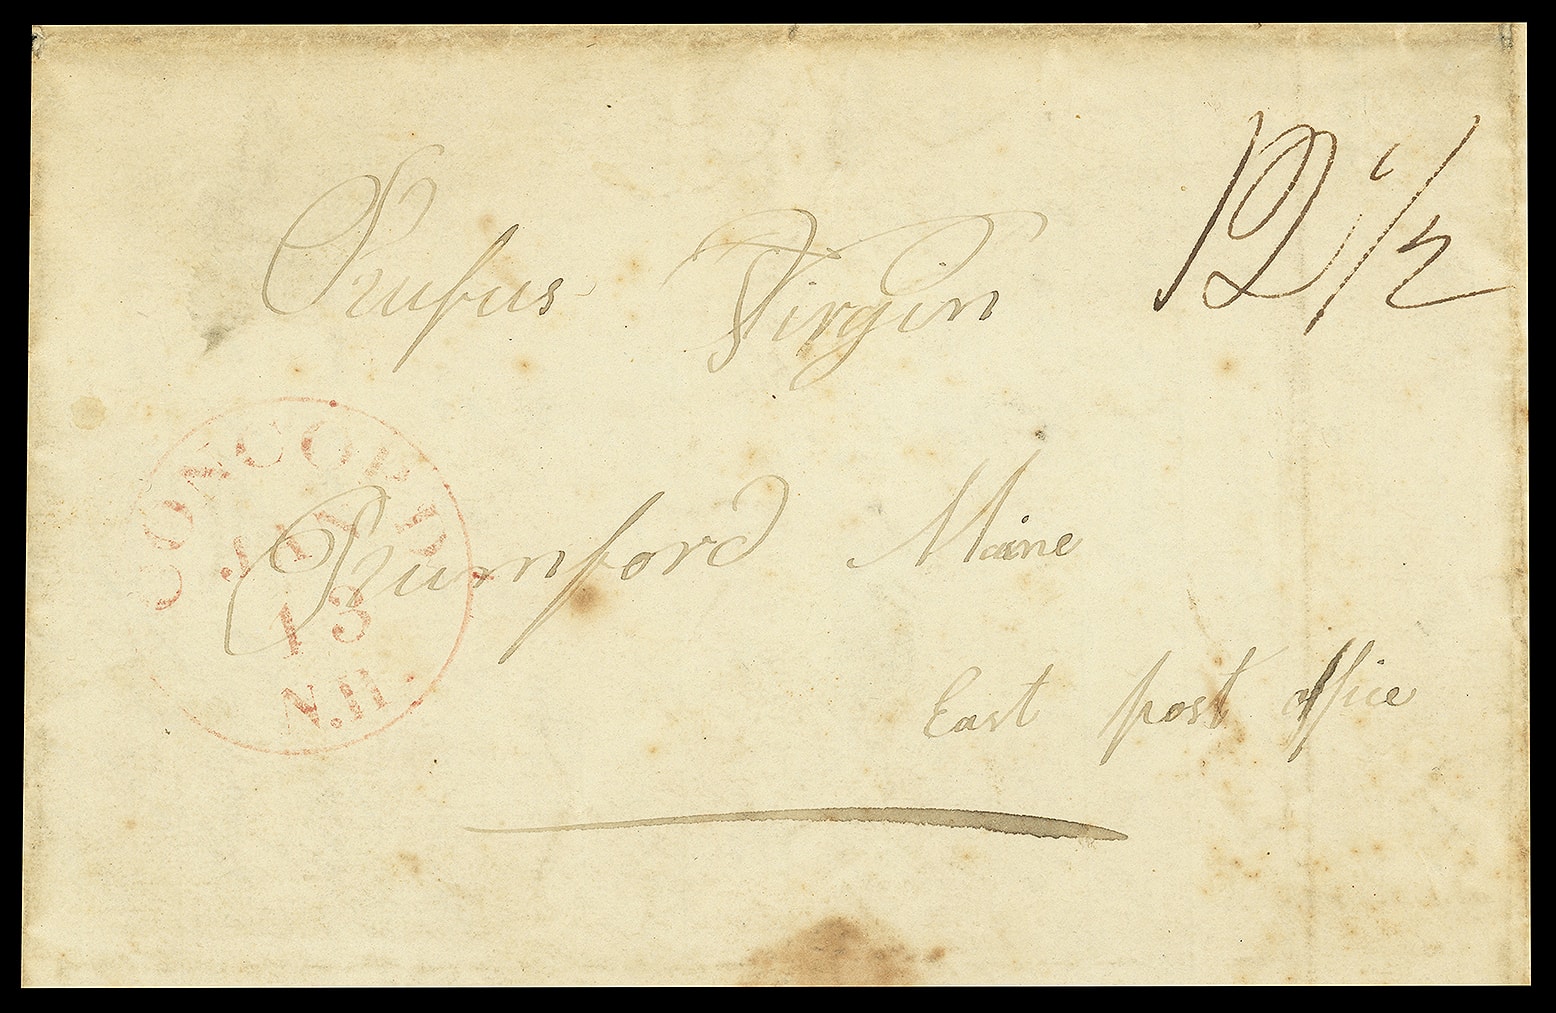 12 1/2
Rufus Virgin
CONCORD
JAN
13
N.H.
Rumford Maine
East post office